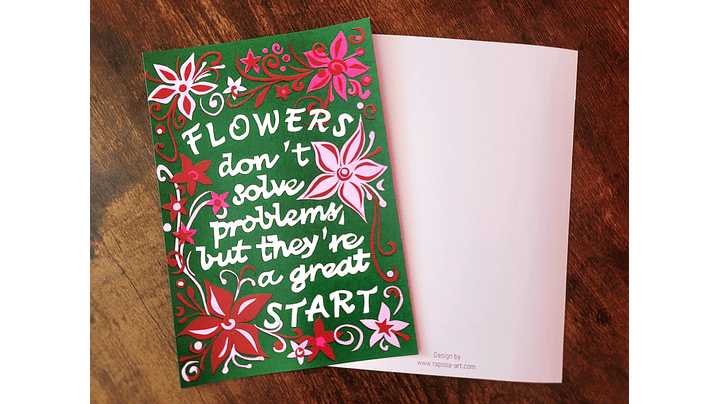 FLOWERS
don't
solve
problems,
but they're
a great
START
Design by
www.raposa-art.com